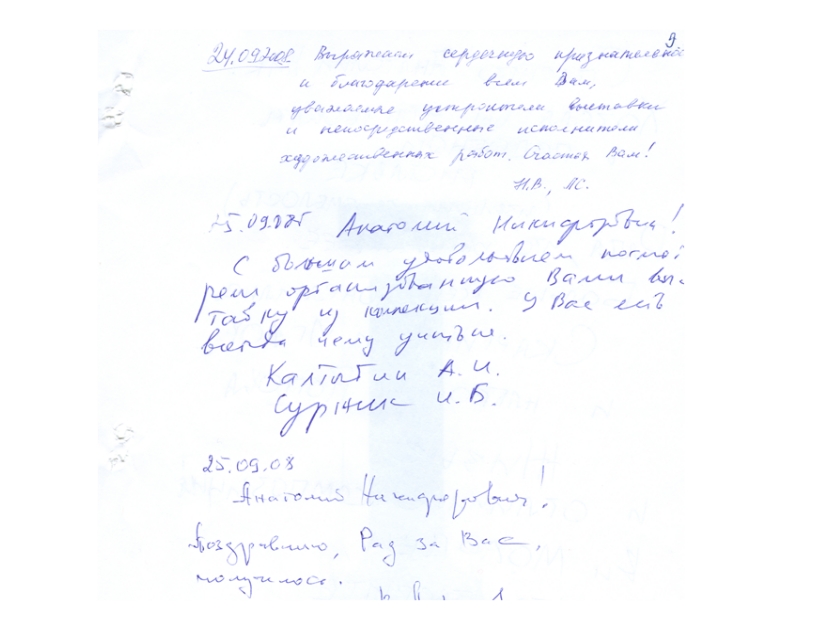 9
24.09.2008. Выражаем сердечную признательнос
и благодарение всем Вам,
уважаемые устроители выставки
и непосредственные исполнители
художественных работ. Счастья Вам!
Н.В., Л.С.
25.09.08г Анатолий Никифорович!
С большим удовольствием посмот
рели организованную Вами выс-
тавку из коллекции. У Вас есть
всегда чему учиться.
А.И.
И.Б.
25.09.08
Анатолий Никифорович!
Поздравляю, Рад за Вас,
получилось.